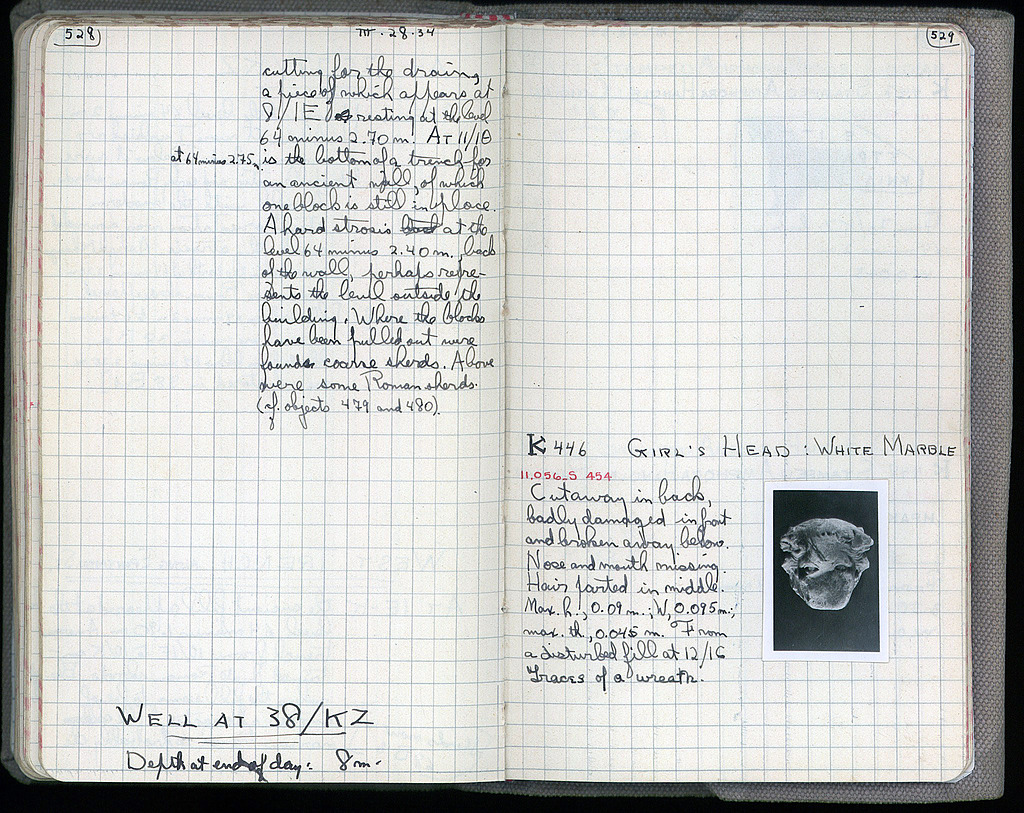 528
III · 28 · 34
cutting for the drain,
a piece of which appears at
8/IE resting at the level
64 minus 2.70 m. AT 11/
at 64 minus 2.75 m
is the bottom of a trench for
an ancient wall, of which
one block is still in place.
A hard strosis at the
level 64 minus 2.40 m., back
of the wall, perhaps repre-
sents the level outside the
building. Where the blocks
have been pulled out were
found coarse sherds. Above
were some Roman sherds.
(cf. objects 479 and 480).
WELL AT 38/KZ
Depth at end of day: 8 m.
529
K 446 GIRL'S HEAD : WHITE MARBLE
11.056-S 454
Cut away in back,
badly damaged in front
and broken away below.
Nose and mouth missing.
Hair parted in middle.
Max. h., 0.09 m.; W, 0.095 m.;
max. th., 0.045 m. From
a disturbed fill at 12/
Traces of a wreath.